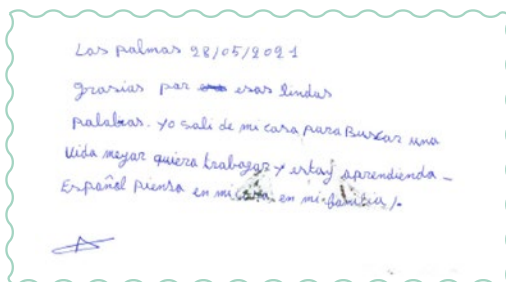 Las palmas 28/05/2021
grasias par esas lindas
palabras. yo sali de mi casa para Buscar una
vida mejar quiera trabagar y estay aprendienda -
Español piensa en mi casa, en mi familia /.